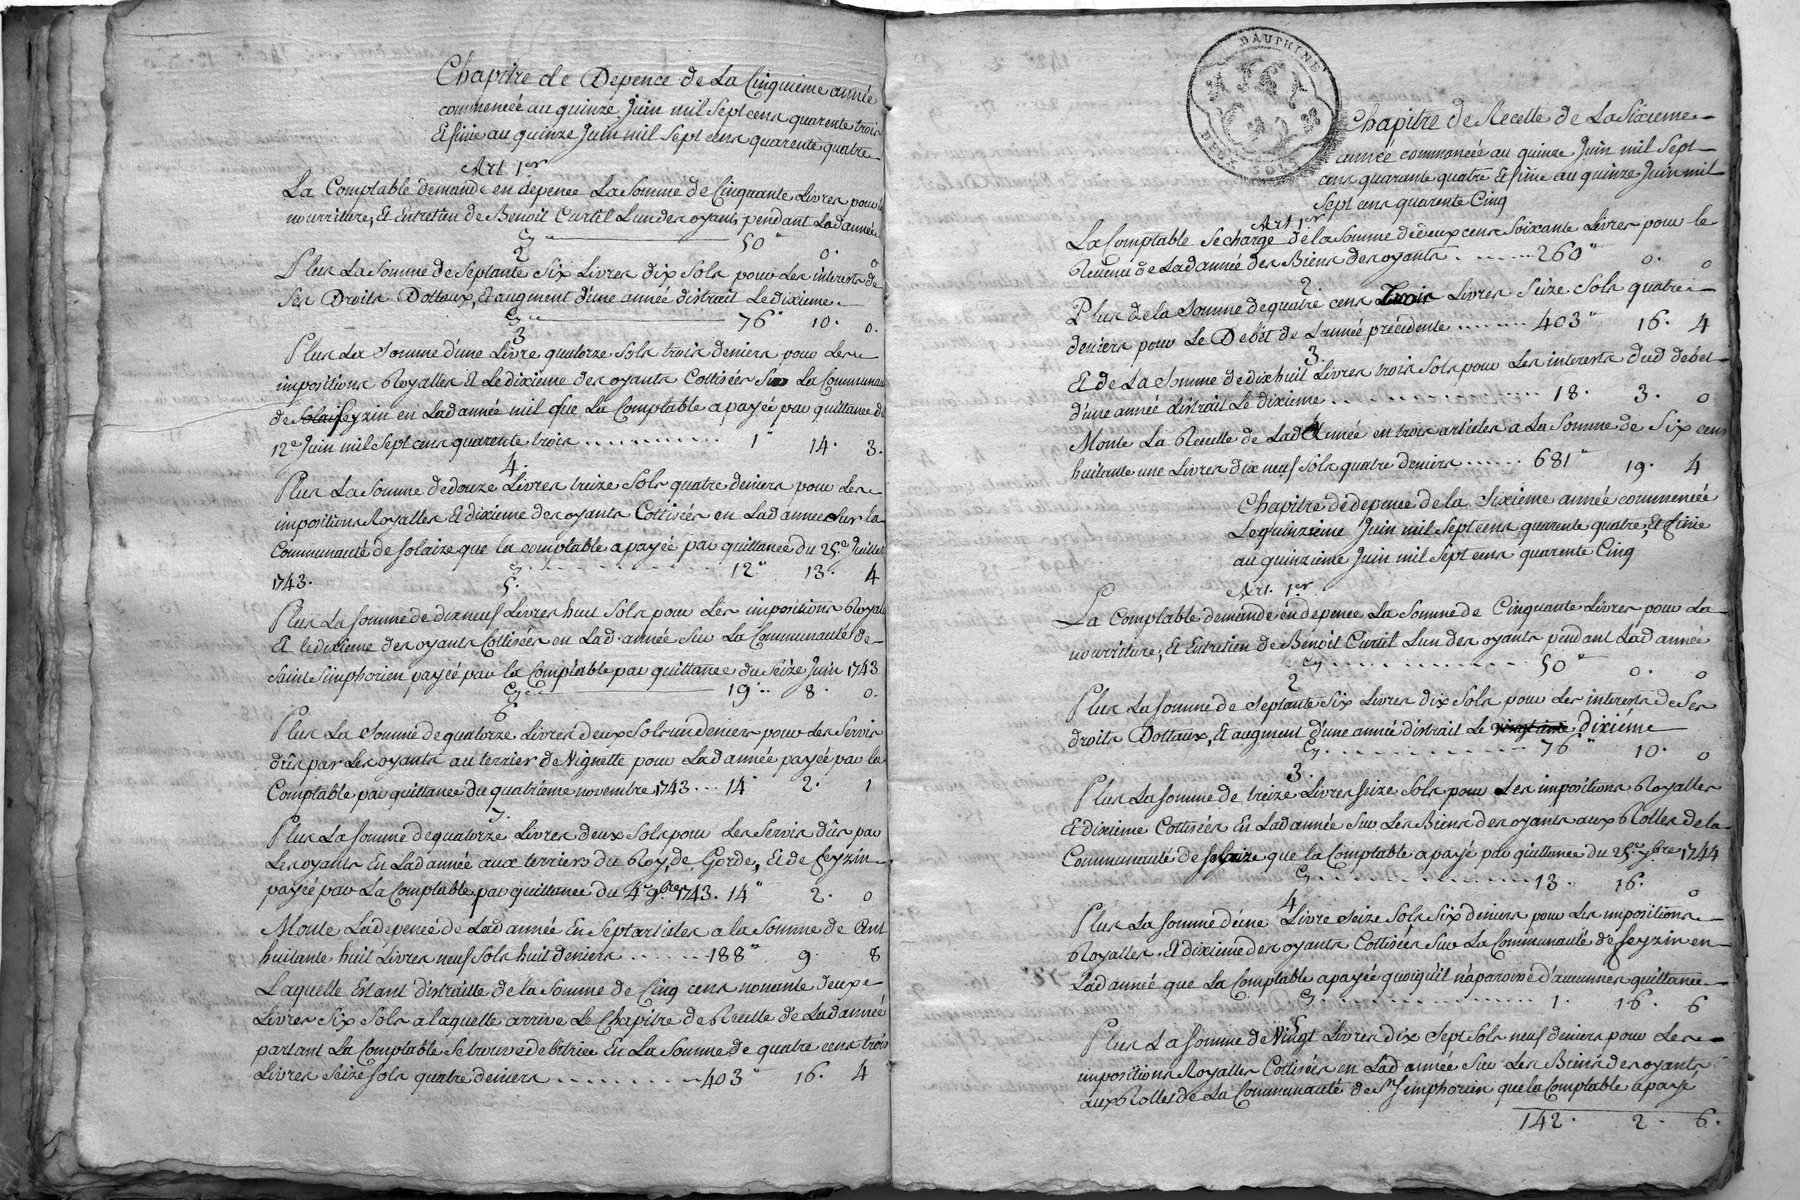 Chapitre de Depence de La Cinquieme année
commencée au quinze Juin mil Sept cens quarente trois
Et finie au quinze Juin mil Sept cens quarente quatre
Art 1er
La Comptable demande en depence La Somme de Cinquante Livres pour la
nourriture, Et Entretien de Benoit Curtil Lun des oyants pendant Lad année
Cy 50 " 0. 0
2
Plus La Somme de Septante Six Livres dix Sols pour Les interests de
Ses Droits Dottaux, Et augment d'une année distrait Le dixieme
Cy 76 " 10. 0.
3
Plus La Somme d'une Livre quatorze Sols trois deniers pour Les
impositions Royalles Et Le dixieme des oyants Cottisées Sur La Communauté
de Seyzin en Lad année mil que La Comptable a payée par quittance du
12e Juin mil Sept cens quarente trois 1 " 14. 3.
4.
Plus La Somme de douze Livres treize Sols quatre deniers pour Les
impositions Royalles Et dixieme des oyants Cottisées en Lad année Sur la
Communauté de Solaize que la comptable a payée par quittance du 25e Juillet
1743. Cy 12 " 13. 4
5.
Plus La Somme de dix neuf Livres huit Sols pour Les impositions Royales
Et le dixieme des oyants Cottisées en Lad. année Sur La Communauté de
Saint Simphorien payée par la Comptable par quittance du Seize Juin 1743
Cy 19. 8. 0.
6
Plus La Somme de quatorze Livres deux Sols un deniers pour Les Servis
dûs par Les oyants au terrier de Vignette pour Lad année payée par la
Comptable par quittance du quatrième novembre 1743 14 " 2. 1
7.
Plus La Somme de quatorze Livres deux Sols pour Les Servis dûs par
Les oyants En Lad année aux terriers du Roy, de Gorde, Et de Seyzin
payée par La Comptable, par quittance du 4e 9bre 1743. 14 " 2. 0
Monte La depence de Lad année En Sept articles a la Somme de Cent
huitante huit Livres neuf Sols huit deniers 188 " 9. 8
Laquelle Estant distraitte de la Somme de Cinq cens nonante deux
Livres Six Sols a laquelle arrive Le Chapitre de Recette de Lad année
partant La Comptable Se trouve debitrice En La Somme de quatre cens trois
Livres Seize Sols quatre deniers 403 " 16. 4
DAUPHINE
DEUX SOLS
Chapitre de Recette de La Sixieme
année commencée au quinze Juin mil Sept
cens quarante quatre Et finie au quinze Juin mil
Sept cens quarente Cinq
Art 1er
La Comptable Se charge de la Somme de deux cens Soixante Livres pour le
Revenu de Lad année des Biens des oyants 260 " 0. 0
2.
Plus de la Somme de quatre cens trois Livres Seize Sols quatre
deniers pour Le Debet de L'année précédente 403 " 16. 4
3.
Et de La Somme de dix huit Livres trois Sols pour Les interests dud debet
d'une année distrait Le dixieme 18. 3. 0
Monte La Recette de Lad Année en trois articles a La Somme de Six cens
huitante une Livres dix neuf Sols quatre deniers 681 " 19. 4
Chapitre de depence de la Sixieme année commencée
Le quinzieme Juin mil Sept cens quarente quatre, Et finie
au quinzieme Juin mil Sept cens quarente Cinq
Art. 1er
La Comptable demande en depence La Somme de Cinquante Livres pour La
nourriture, Et Entretien de Benoit Curtil Lun des oyants pendant Lad année
Cy 50 " 0. 0
2
Plus La Somme de Septante Six Livres Dix Sols pour Les interests de Ses
droits Dottaux, Et augment d'une année distrait Le dixiéme
Cy 76 " 10. 0
3.
Plus La Somme de treize Livres Seize Sols pour Les impositions Royalles
Et dixieme Cottisées En Lad année Sur Les Biens des oyants aux Rolles de la
Communauté de Solaize que la Comptable a payé par quittance du 25e 7bre 1744
Cy 13. 16. 0
4
Plus La Somme d'une Livre Seize Sols Six deniers pour Les impositions
Royalles, Et dixieme des oyants Cottisées Sur La Communauté de Seyzin en
Lad année que La Comptable a payée quoiqu'il n'aparoisse d'aucunnes quittance
Cy 1. 16. 6
5
Plus La Somme de Vingt Livres dix Sept Sols neuf deniers pour Les
impositions Royalles Cottisées en Lad année Sur Les Biens des oyants
aux Rolles de La Communauté de St Simphorien que la Comptable a payé
142. 2. 6.